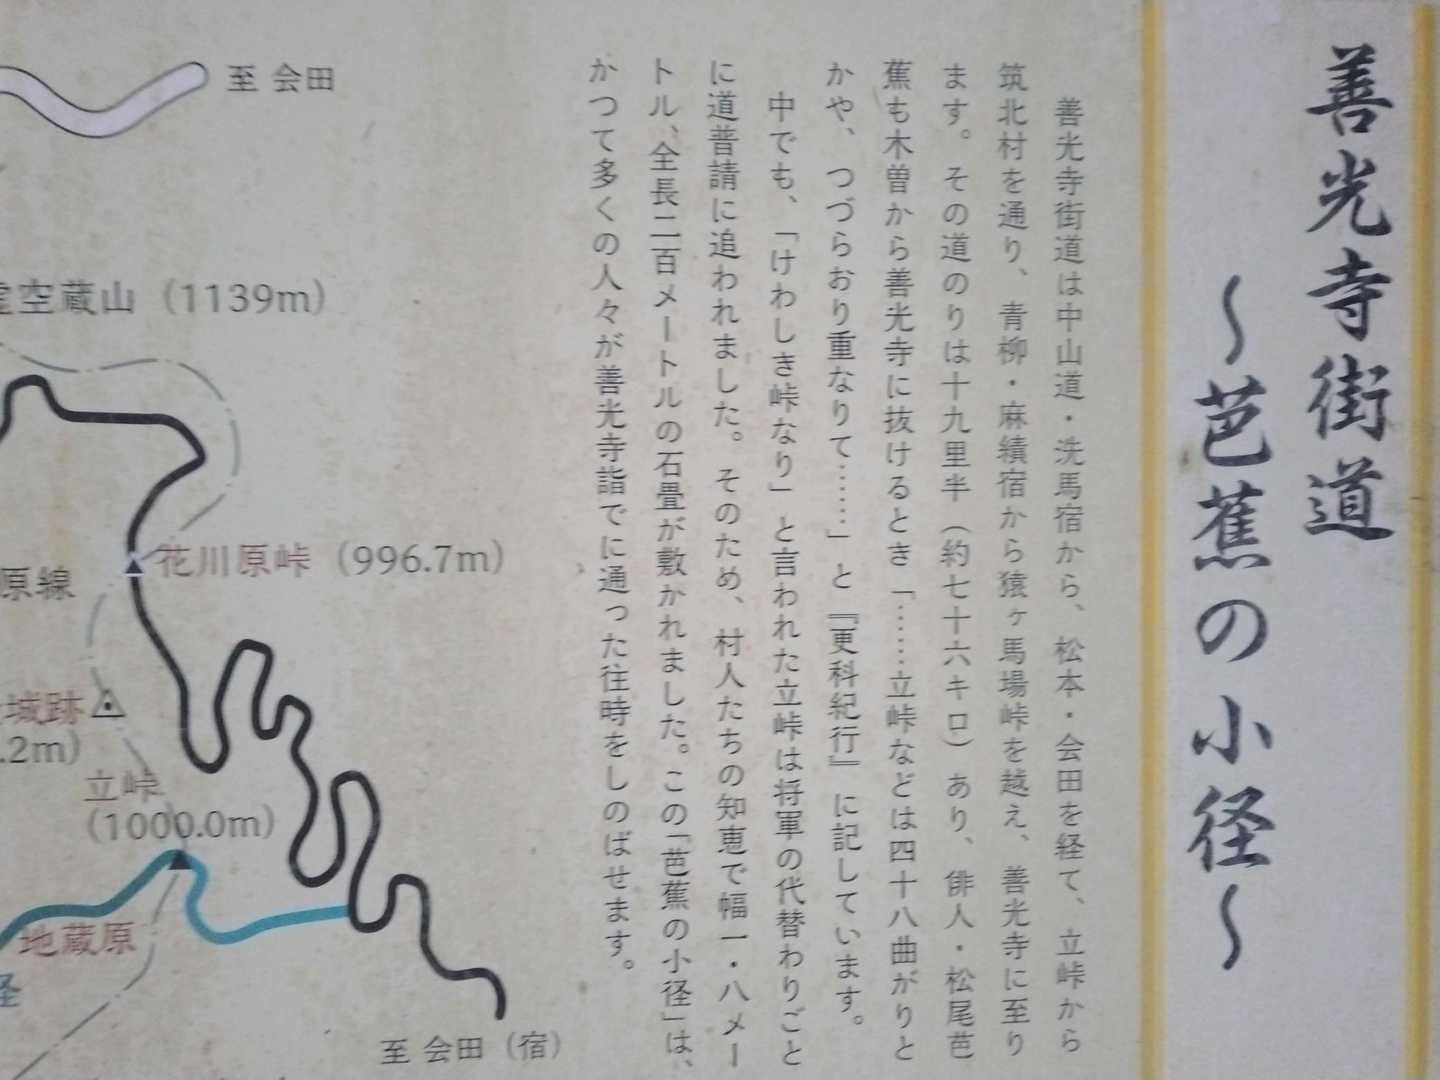 善光寺街道
〜芭蕉の小径〜
善光寺街道は中山道・洗馬宿から、松本・会田を経て、立峠から
筑北村を通り、青柳・麻績宿から猿ヶ馬場峠を越え、善光寺に至り
ます。その道のりは十九里半（約七十六キロ）あり、俳人・松尾芭
蕉も木曽から善光寺に抜けるとき「……立峠などは四十八曲がりと
かや、つづらおり重なりて……」と『更科紀行』に記しています。
中でも、「けわしき峠なり」と言われた立峠は将軍の代替わりごと
に道普請に追われました。そのため、村人たちの知恵で幅一・八メー
トル、全長二百メートルの石畳が敷かれました。この「芭蕉の小径」は、
かつて多くの人々が善光寺詣でに通った往時をしのばせます。
至 会田
空蔵山（1139m）
花川原峠（996.7m）
原線
城跡
.2m）
立峠
（1000.0m）
地蔵原
径
至 会田（宿）